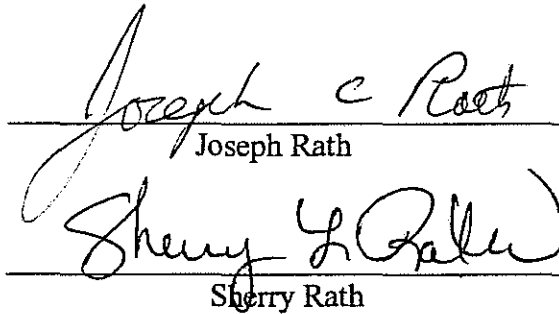 Joseph C Rath
Joseph Rath
Sherry L Rath
Sherry Rath